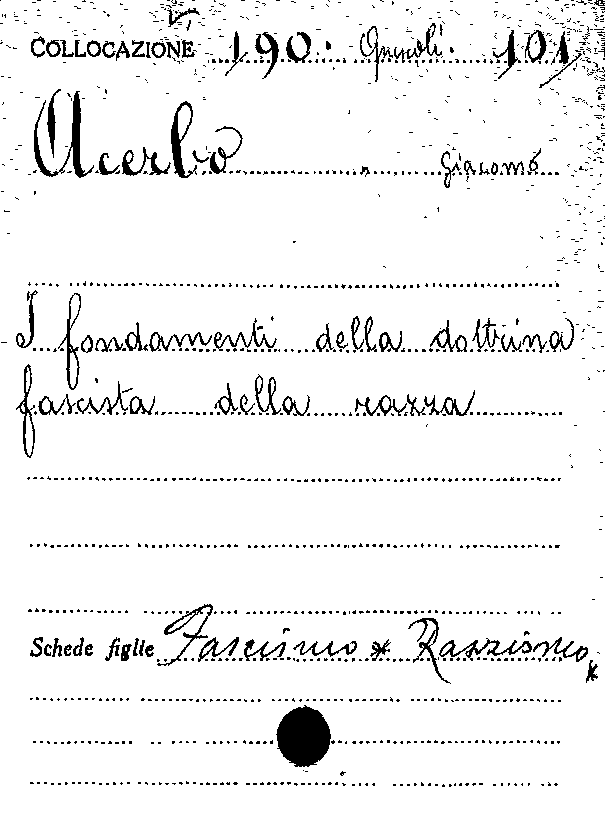 COLLOCAZIONE 190. Opuscoli. 101
Acerbo Giacomo
I fondamenti della dottrina
fascista della razza
Schede figlie Fascismo * Razzismo *